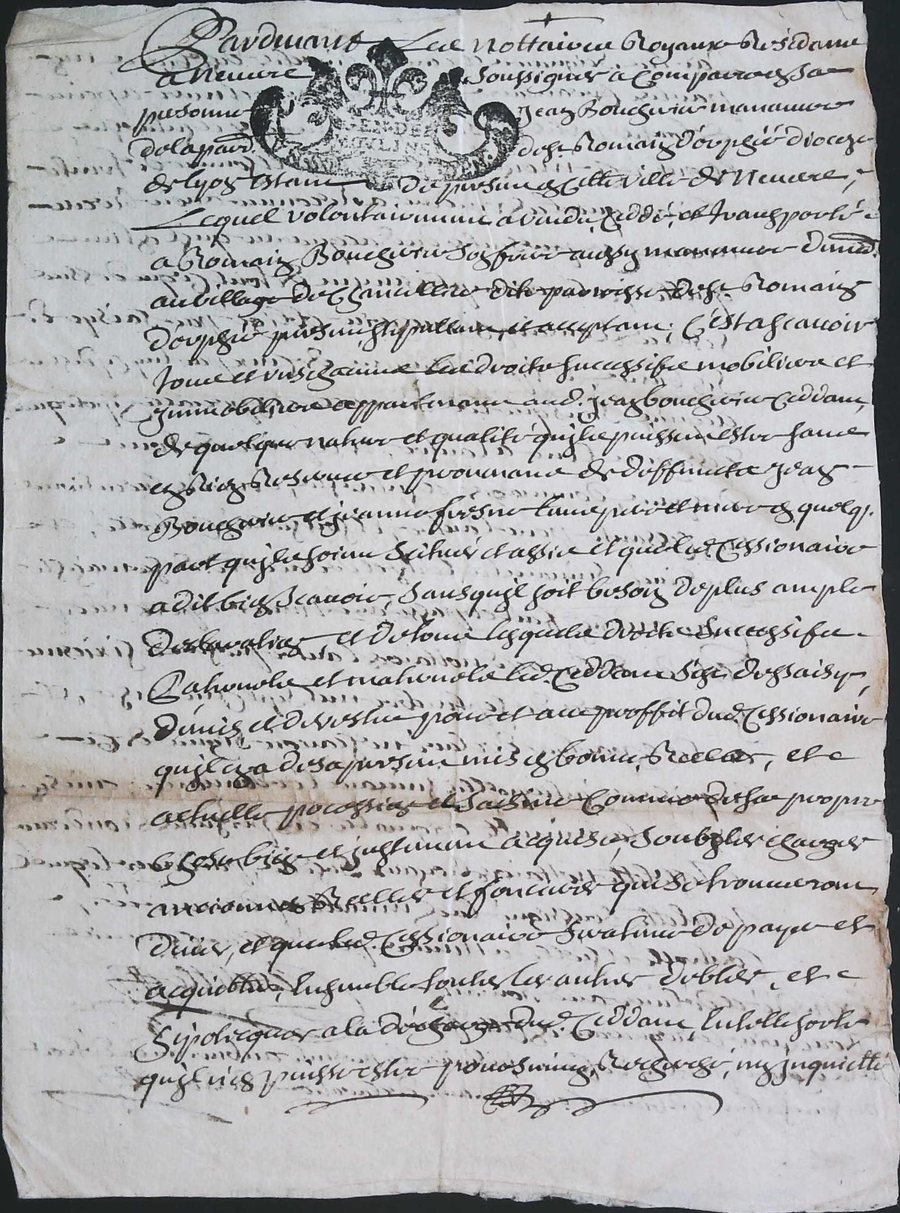 Pardevant Les nottaires Royaux Residans
a Nevers Soussignes a Comparu en Sa
personne Jean Bouchery manœuvre
de la par. de St. Romain d'urphé dioceze
de lyon Estant De present en Cette Ville de Nevers,
Lequel volontairement a vendu, Ceddé, et transporté
a Romain Bouchery Son frere aussy manœuvre dem.t
au village de dite parroisse de St. Romain
d'urphé present, stipullant, et acceptant, C'est ascavoir
tous et uns chacuns Les droits Successifs mobiliers et
immobiliers appartenans aud. Jean bouchery Ceddant,
de quelque nature et qualité qu'ils puissent estre sans
en Rien Reserver et provenans de deffuncts Jean
Bouchery et Jeanne leurs pere et mere en quelq.
part qu'ils soient Scitués et assis et que led. Cessionaire
a dit bien Scavoir, Sans qu'il soit besoin de plus ample
declaration et de tous lesquels droits Successifs
Paternels et maternels led. Ceddant S'est dessaisy,
demis et devestu pour et au proffit dud. Cessionaire
qu'il en a des a present mis en bonne, Reelle, et
actuelle pocession et Saisine Comme de chose propre
a luy et justement acquise, Soubs les charges
anciennes Reelles et foncieres qui Se trouveront
deües, et que led. Cessionaire Sera tenu de payer et
acquitter, Ensemble toutes les autres debtes, et
hipotecques a la décharge dud. Ceddant, En telle sorte
qu'il n'en puisse estre poursuivy, Recherché, ny inquietté
GEN. DE
MOULINS